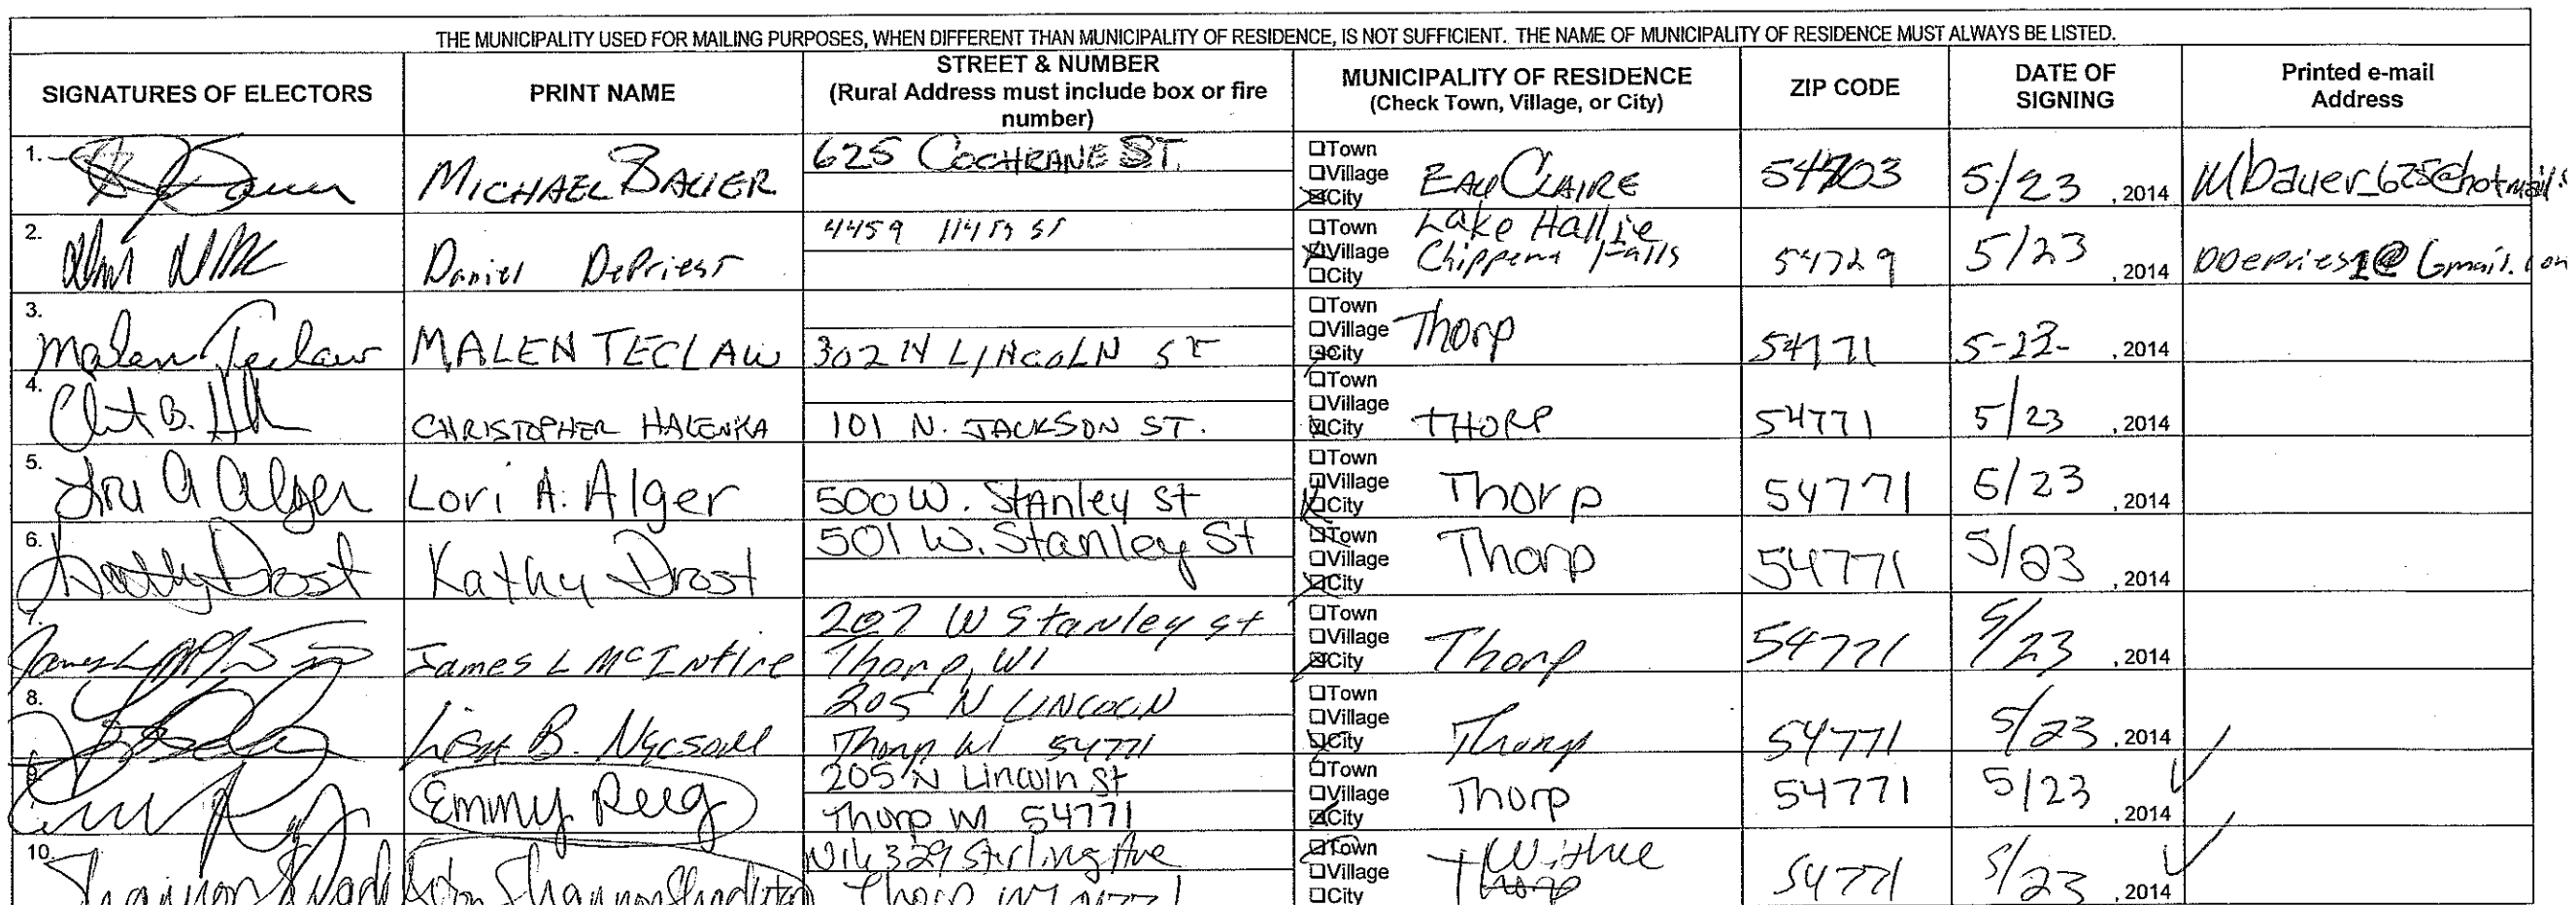 THE MUNICIPALITY USED FOR MAILING PURPOSES, WHEN DIFFERENT THAN MUNICIPALITY OF RESIDENCE, IS NOT SUFFICIENT. THE NAME OF MUNICIPALITY OF RESIDENCE MUST ALWAYS BE LISTED.
SIGNATURES OF ELECTORS PRINT NAME STREET & NUMBER (Rural Address must include box or fire number) MUNICIPALITY OF RESIDENCE (Check Town, Village, or City) ZIP CODE DATE OF SIGNING Printed e-mail Address
1. MICHAEL BAUER 625 COCHRANE ST. Town Village City EAU CLAIRE 54703 5/23 , 2014 Mbauer_625@hotmail
2. Daniel DePriest 4459 114th st Town Village City Lake Hallie Chippewa Falls 54729 5/23 , 2014 DDepries1@Gmail.com
3. Malen Teclaw MALEN TECLAW 302 N LINCOLN ST Town Village City Thorp 54771 5-23- , 2014
4. CHRISTOPHER HALENKA 101 N. JACKSON ST. Town Village City THORP 54771 5/23 , 2014
5. Lori A Alger Lori A. Alger 500 W. Stanley St Town Village City Thorp 54771 5/23 , 2014
6. Kathy Drost Kathy Drost 501 W. Stanley St Town Village City Thorp 54771 5/23 , 2014
7. James L McIntire 207 W Stanley st Thorp, WI Town Village City Thorp 54771 5/23 , 2014
8. Lisa B. 205 N LINCOLN Thorp WI 54771 Town Village City Thorp 54771 5/23 , 2014
9. Emmy Reeg 205 N Lincoln St Thorp WI 54771 Town Village City Thorp 54771 5/23 , 2014
10. Shannon Town Village City Withee Thorp 54771 5/23 , 2014